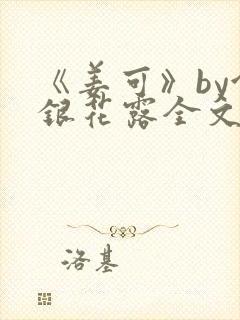 《姜可》by
銀花露全文
洛基